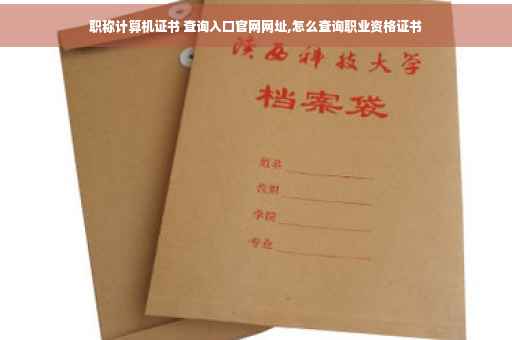 职称计算机证书 查询入口官网网址,怎么查询职业资格证书
陕西科技大学
档案袋
姓名
学院
专业